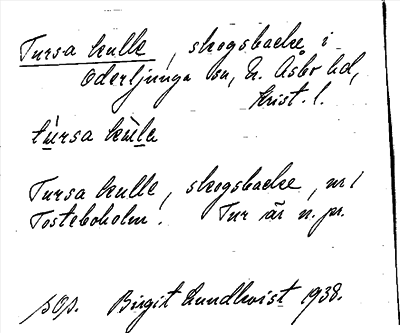 Tursa kulle, skogsbacke i
Oderljunga sn, N. Åsbo hd,
Krist. l.
tùrsa kùlə
Tursa kulle, skogsbacke, nr 1
Tosteboholm. Tur är n. pr.
sop. Birgit Lundkvist 1938.